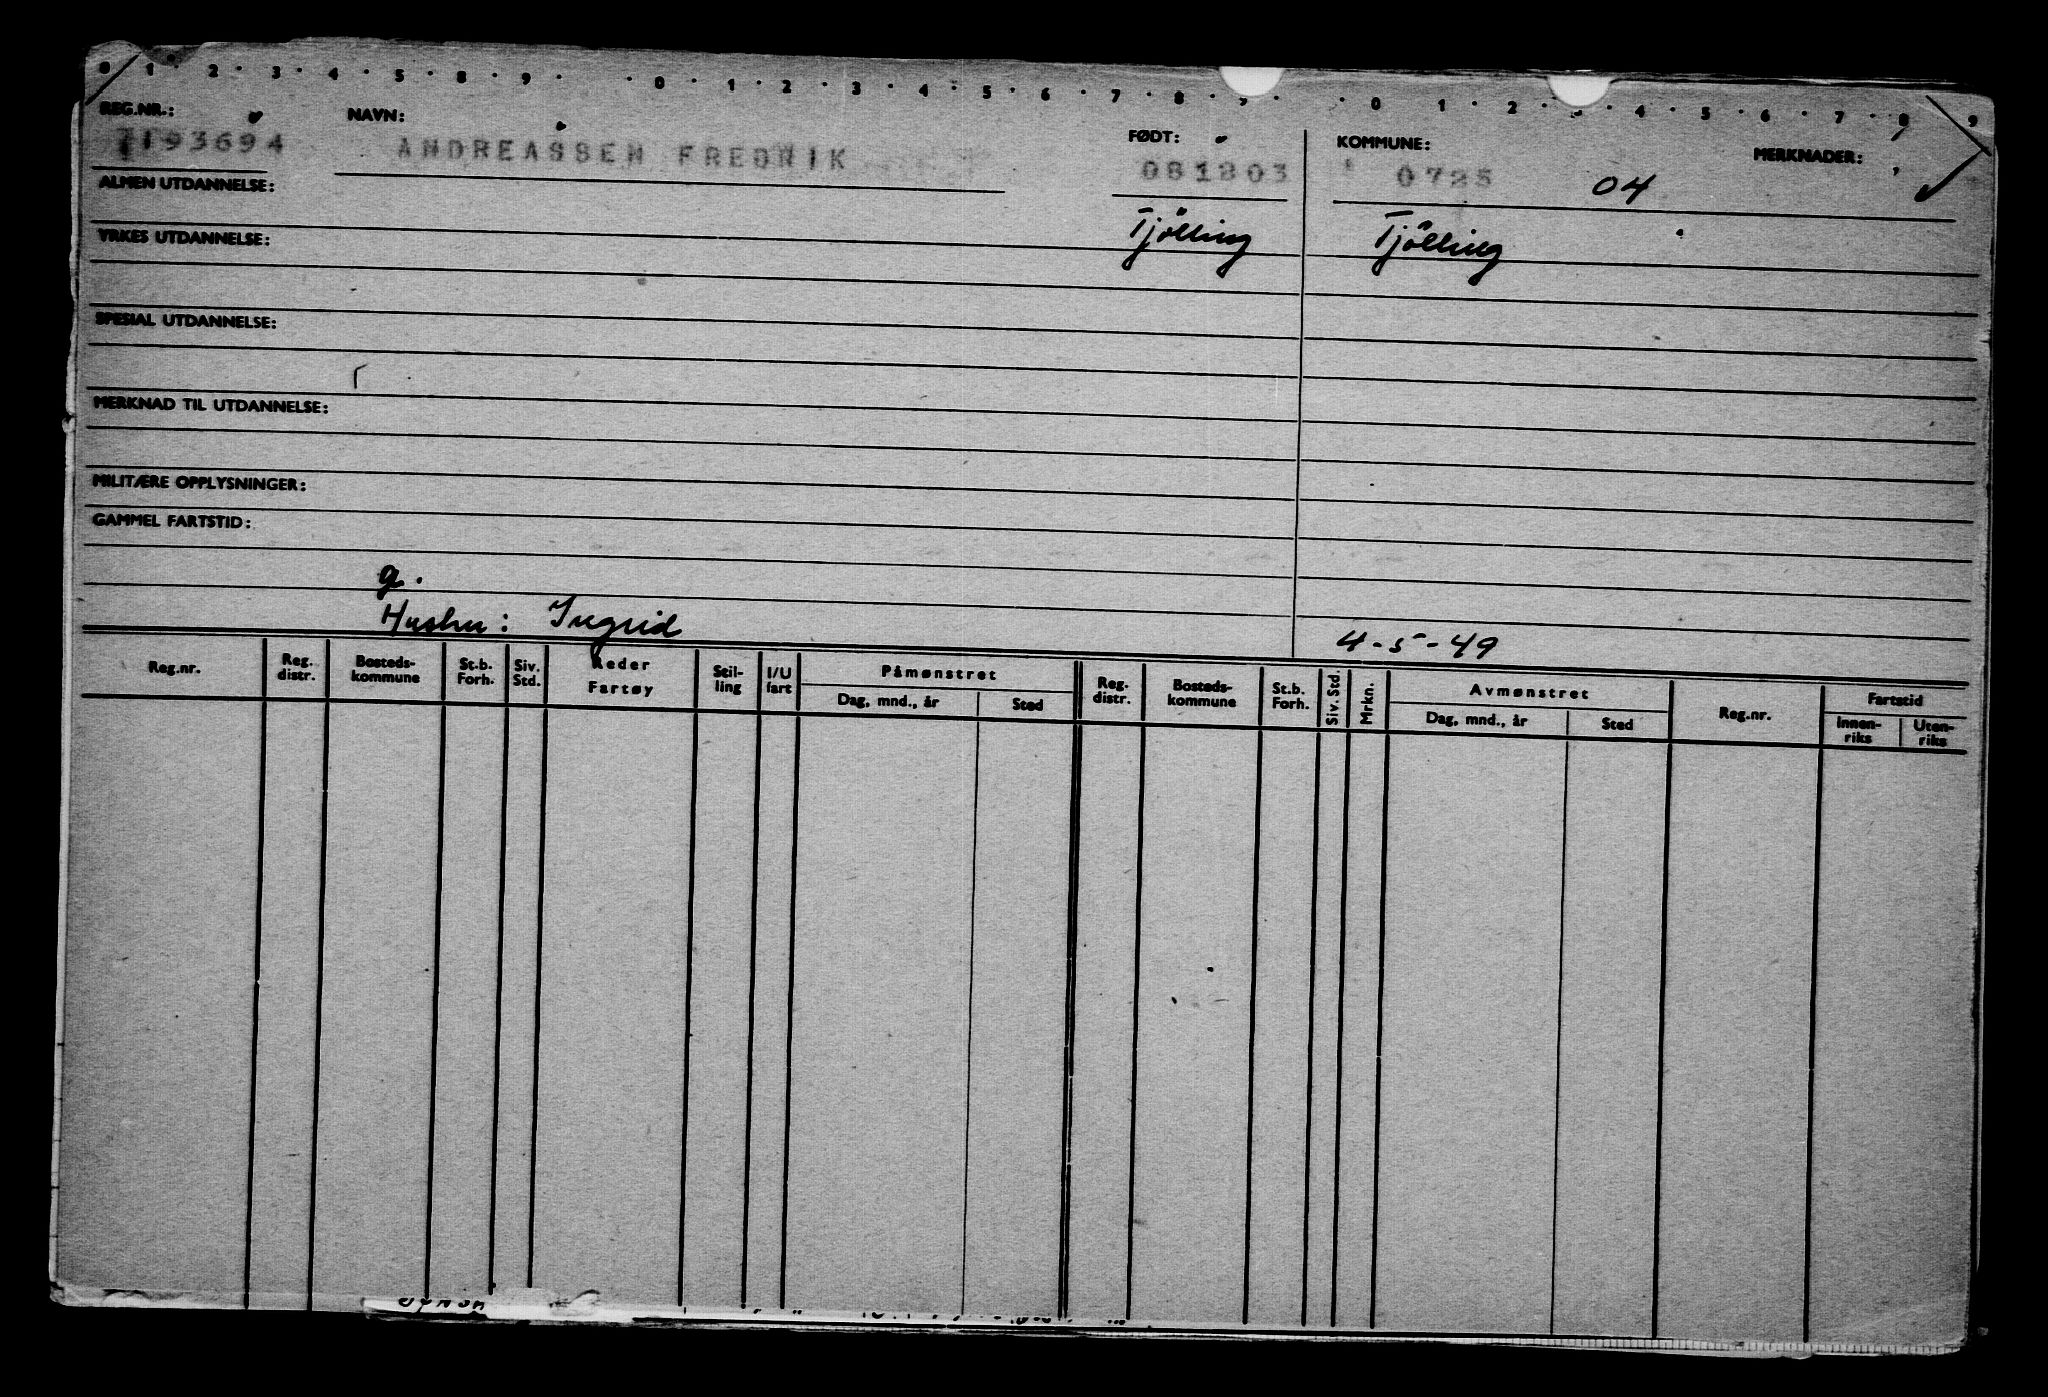 0 · 1 · 2 · 3 · 4 · 5 · 8 · 9 · · 0 · 1 · 2 · 3 · 4 · 5 · 6 · 7 · 8 · 9 · · 0 · 1 · 2 · 3 · 4 · 5 · 6 · 7 · 8 · 9
REG.NR.: NAVN: FØDT: KOMMUNE: MERKNADER:
7193694 ANDREASSEN FREDRIK 081203 0725 04
ALMEN UTDANNELSE:
Tjölling Tjölling
YRKES UTDANNELSE:
SPESIAL UTDANNELSE:
MERKNAD TIL UTDANNELSE:
MILITÆRE OPPLYSNINGER:
GAMMEL FARTSTID:
g.
Hustru: Ingrid 4-5-49
Reg.nr. Reg. distr. Bosteds-kommune St.b. Forh. Siv. Std. Reder Fartøy Stil-ling I/U fart Påmønstret Dag, mnd., år Sted Reg. distr. Bosteds-kommune St.b. Forh. Siv. Std. Mrkn. Avmønstret Dag, mnd., år Sted Reg.nr. Fartstid Innen-riks Uten-riks